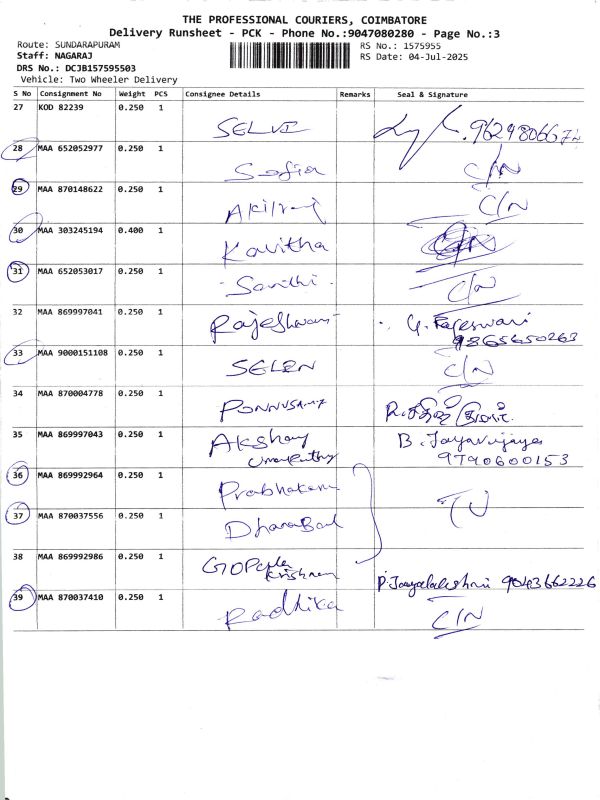 THE PROFESSIONAL COURIERS, COIMBATORE
Delivery Runsheet - PCK - Phone No.:9047080280 - Page No.:3
Route: SUNDARAPURAM
RS No.: 1575955
Staff: NAGARAJ
RS Date: 04-Jul-2025
DRS No.: DCJB157595503
Vehicle: Two Wheeler Delivery
S No Consignment No Weight PCS Consignee Details Remarks Seal & Signature
27 KOD 82239 0.250 1
SELVI
28 MAA 652052977 0.250 1
Sofia C/N
29 MAA 870148622 0.250 1
C/N
30 MAA 303245194 0.400 1
Kavitha C/N
31 MAA 652053017 0.250 1
C/N
32 MAA 869997041 0.250 1
Rajeshwari G. Rajeswari
9865650263
33 MAA 9000151108 0.250 1
SELEN C/N
34 MAA 870004778 0.250 1
PONNUSAMY
35 MAA 869997043 0.250 1
Akshay B. Jayavijaya
9790600153
36 MAA 869992964 0.250 1
Prabhakaran
37 MAA 870037556 0.250 1
38 MAA 869992986 0.250 1
GOPala
Krishnan P. Jayalakshmi 9043662226
39 MAA 870037410 0.250 1
Radhika C/N